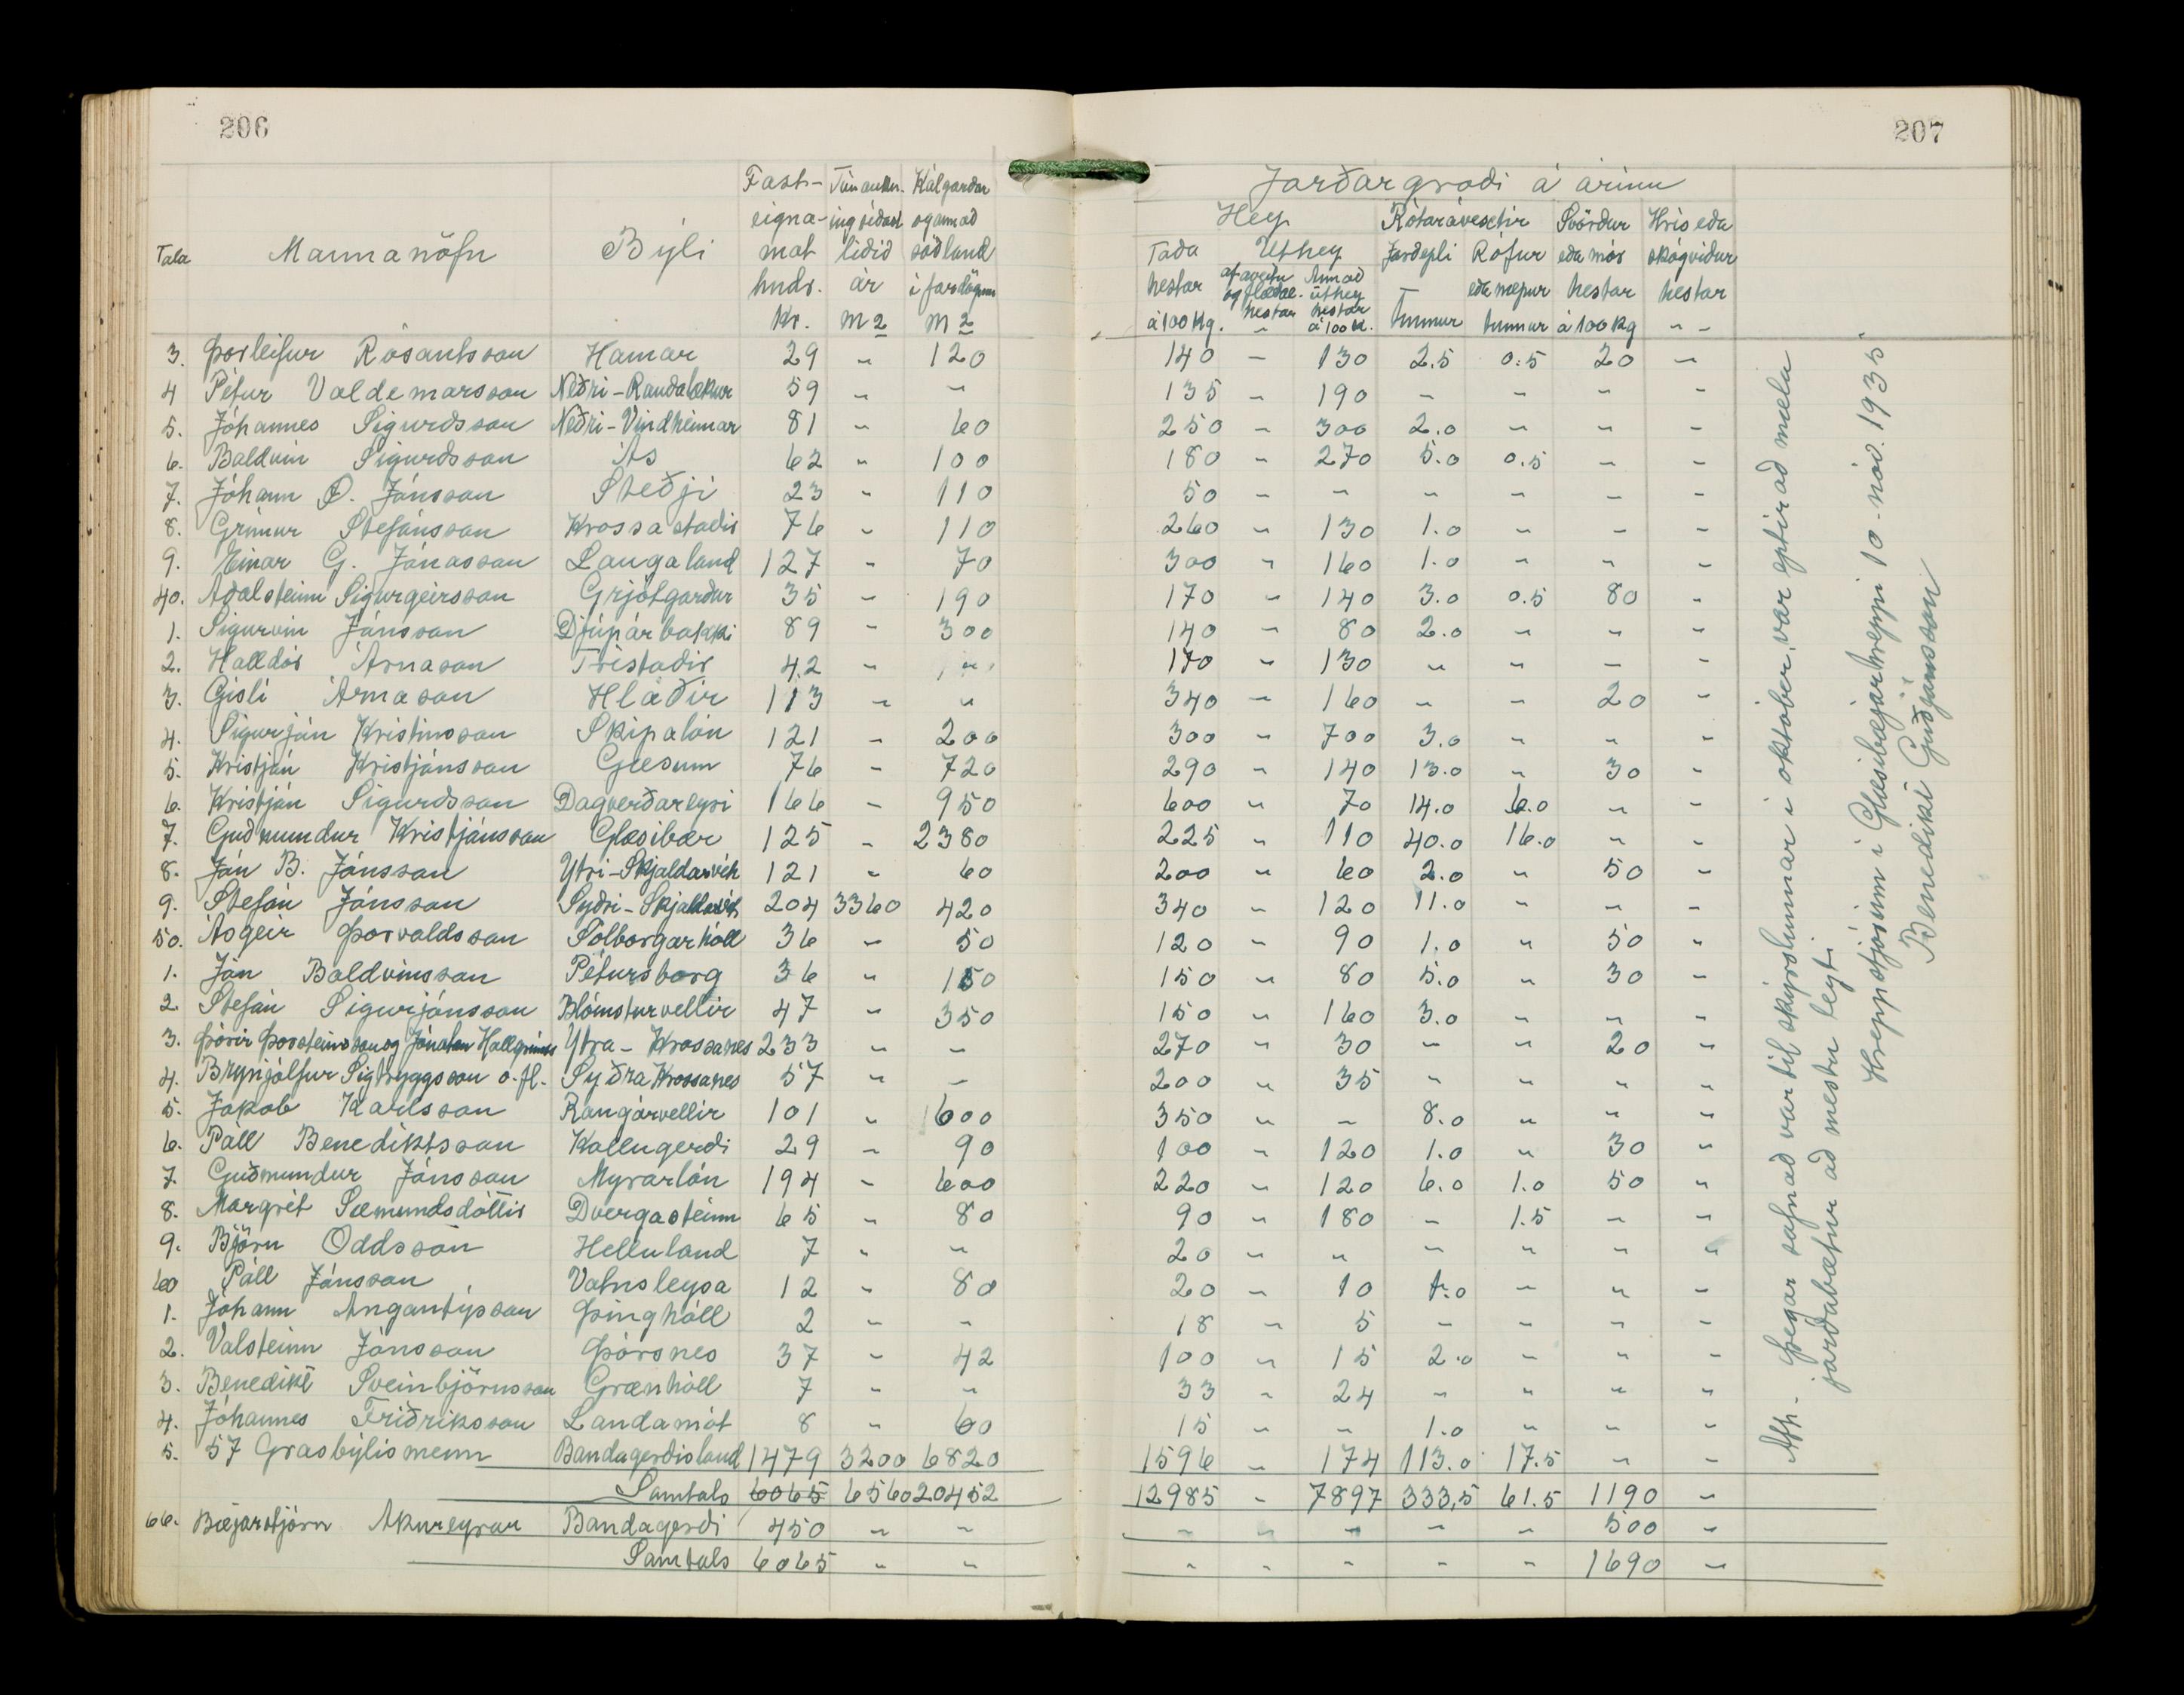 206
207
Tala Mannanöfn Býli Fast-eigna-mat hndr. kr. Túnaukn-ing síðastliðið ár m2 Kálgarðar og annað sáðland í fardögum m2
Jarðargróði á árinu
Hey Rótarávextir Svörður eða mór hestar á 100 kg Hrís eða skógviður hestar
Taða hestar á 100 kg. Úthey af áveitu og flæðae. hestar Annað úthey hestar á 100 k. Jarðepli tunnur Rófur eða næpur tunnur
3. Þorleifur Rósantsson Hamar 29 " 120 140 - 130 2.5 0.5 20 -
4 Pétur Valdemarsson Neðri-Rauðalækur 59 " " 135 - 190 - - - -
5. Jóhannes Sigurdsson Neðri-Vindheimar 81 " 60 250 - 300 2.0 " " -
6. Baldvin Sigurdsson Ás 62 " 100 180 - 270 5.0 0.5 - -
7. Jóhann O. Jónsson Steðji 23 " 110 50 - - - - - -
8. Grímur Stefánsson Krossastadir 76 - 110 260 " 130 1.0 - - -
9. Einar G. Jónasson Laugaland 127 " 70 300 " 160 1.0 - " -
40. Aðalsteinn Sigurgeirsson Grjótgarður 35 - 190 170 " 140 3.0 0.5 80 -
1. Sigurvin Jónsson Djúpárbakki 89 - 300 140 " 80 2.0 " " -
2. Halldór Árnason Tréstaðir 42 - 170 " 130 " " - -
3. Gísli Árnason Hlaðir 113 " " 340 - 160 - - 20 -
4. Sigurjón Kristinsson Skipalón 121 - 200 300 " 700 3.0 " " -
5. Kristján Kristjánsson Gæsum 76 - 720 290 " 140 13.0 " 30 -
6. Kristján Sigurdsson Dagverðareyri 166 - 950 600 " 70 14.0 6.0 " -
7. Guðmundur Kristjánsson Glæsibær 125 - 2380 225 " 110 40.0 16.0 " -
8. Jón B. Jónsson Ytri-Skjaldarvík 121 " 60 200 " 60 2.0 " 50 -
9. Stefán Jónsson Syðri-Skjaldarvík 204 3360 420 340 - 120 11.0 " - -
50. Ásgeir Þorvaldsson Sólborgarhóll 36 - 50 120 " 90 1.0 " 50 "
1. Jón Baldvinsson Pétursborg 36 " 150 150 " 80 5.0 " 30 -
2. Stefán Sigurjónsson Blómsturvellir 47 " 350 150 " 160 3.0 " " "
3. Þórir Þorsteinsson og Jónatan Hallgríms Ytra-Krossanes 233 " - 270 " 30 - " 20 "
4. Brynjólfur Sigtryggsson o.fl. Syðra Krossanes 57 " - 200 " 35 " " " "
5. Jakob Karlsson Rangárvellir 101 " 1600 350 " - 8.0 " " "
6. Páll Benediktsson Kollugerði 29 - 90 100 " 120 1.0 " 30 "
7. Guðmundur Jónsson Mýrarlón 194 - 600 220 " 120 6.0 1.0 50 "
8. Margrét Sæmundsdóttir Dvergasteinn 65 - 80 90 " 180 - 1.5 - "
9. Björn Oddsson Helluland 7 " " 20 " " - " " "
60 Páll Jónsson Vatnsleysa 12 - 80 20 - 10 1.0 - " -
1. Jóhann Angantýsson Þinghóll 2 - - 18 - 5 - - - -
2. Valsteinn Jónsson Þórsnes 37 - 42 100 " 15 2.0 - " -
3. Benedikt Sveinbjörnsson Grænhóll 7 " " 33 " 24 " " " "
4. Jóhannes Friðriksson Landamót 8 - 60 15 - - 1.0 - - -
5. 57 Grasbýlismenn Bandagerðisland 1479 3200 6820 1596 - 174 113.0 17.5 " -
Samtals 6065 6560 20452 12985 - 7897 333,5 61.5 1190 -
66. Bæjarstjórn Akureyrar Bandagerdi 450 - - - - - - - 500 -
Samtals 6065 " " - - - - - 1690 -
Ath. Þegar safnað var til skýrslunnar í október, var eptir að mæla
jarðabætur að mestu leyti.
Hreppstjórinn í Glæsibæjarhreppi 10. nóv. 1935
Benedikt Guðjónsson